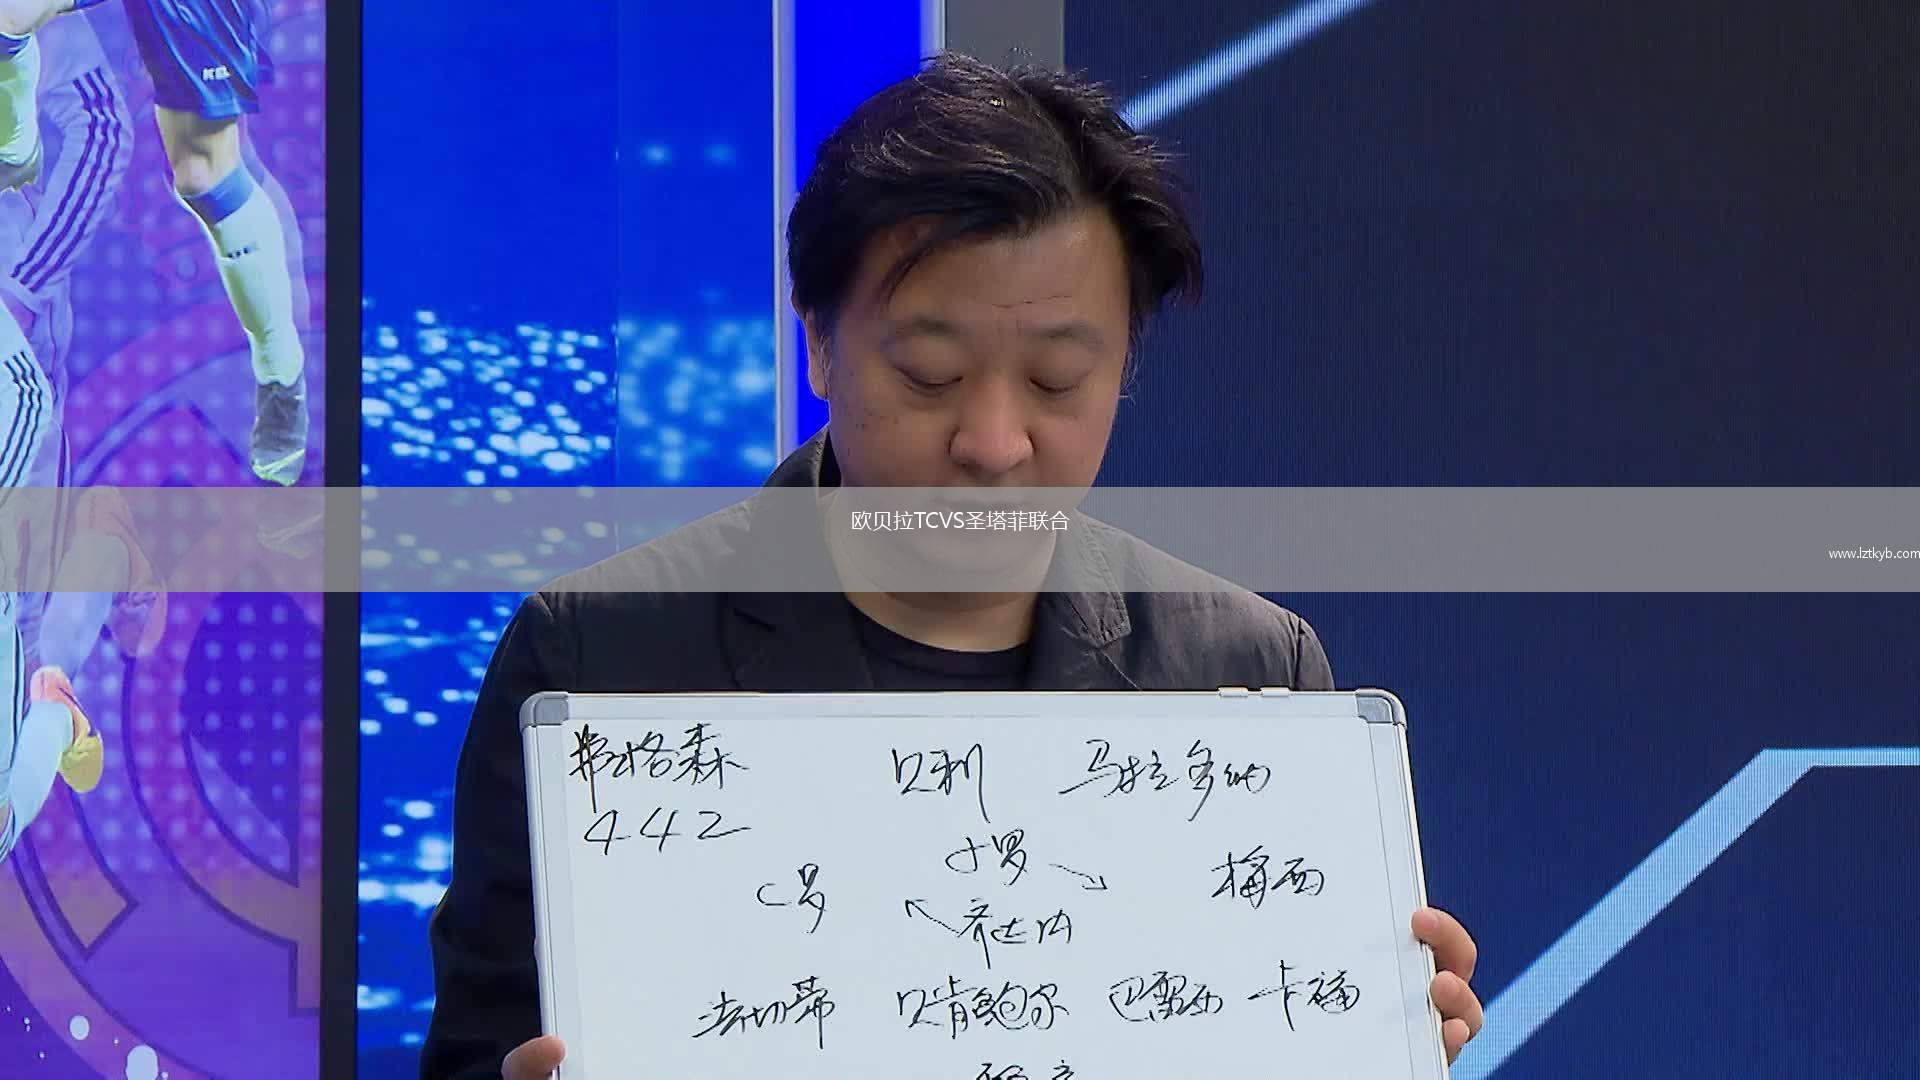 KEL
欧贝拉TCVS圣塔菲联合
www.lztkyb.com
弗格森 贝利 马拉多纳
442
小罗
C罗 梅西
齐达内
法切蒂 贝肯鲍尔 巴雷西 卡福